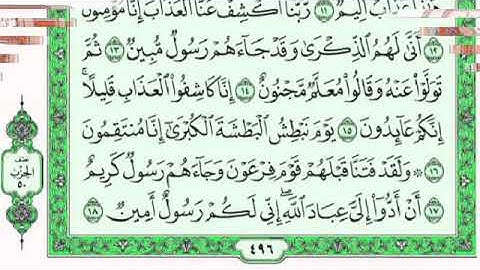 هَٰذَا عَذَابٌ أَلِيمٌ ۝١١ رَّبَّنَا ٱكْشِفْ عَنَّا ٱلْعَذَابَ إِنَّا مُؤْمِنُونَ
۝١٢ أَنَّىٰ لَهُمُ ٱلذِّكْرَىٰ وَقَدْ جَآءَهُمْ رَسُولٌ مُّبِينٌ ۝١٣ ثُمَّ
تَوَلَّوْا۟ عَنْهُ وَقَالُوا۟ مُعَلَّمٌ مَّجْنُونٌ ۝١٤ إِنَّا كَاشِفُوا۟ ٱلْعَذَابِ قَلِيلًا ۚ
إِنَّكُمْ عَآئِدُونَ ۝١٥ يَوْمَ نَبْطِشُ ٱلْبَطْشَةَ ٱلْكُبْرَىٰٓ إِنَّا مُنتَقِمُونَ
۝١٦ ۞ وَلَقَدْ فَتَنَّا قَبْلَهُمْ قَوْمَ فِرْعَوْنَ وَجَآءَهُمْ رَسُولٌ كَرِيمٌ
۝١٧ أَنْ أَدُّوٓا۟ إِلَىَّ عِبَادَ ٱللَّهِ ۖ إِنِّى لَكُمْ رَسُولٌ أَمِينٌ ۝١٨
نصف
الحزب
٥٠
٤٩٦